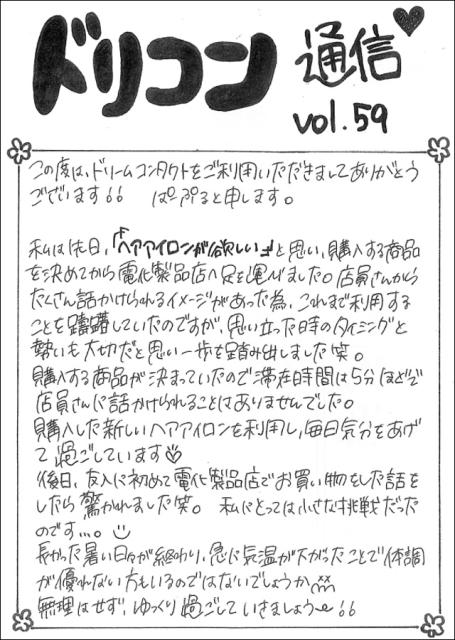 ドリコン 通信♥
vol.59
この度は、ドリームコンタクトをご利用いただきましてありがとう
ございます♭♭ ぱーぷると申します。
私は先日、「ヘアアイロンが欲しい」と思い、購入する商品
を決めてから電化製品店へ足を運びました。店員さんから
たくさん話かけられるイメージがあった為、これまで利用する
ことを躊躇していたのですが、思い立った時のタイミングと
勢いも大切だと思い一歩を踏み出しました笑。
購入する商品が決まっていたので滞在時間は5分ほどで
店員さんに話かけられることはありませんでした。
購入した新しいヘアアイロンを利用し、毎日気分をあげ
て過ごしています
後日、友人に初めて電化製品店でお買い物をした話を
したら驚かれました笑。 私にとっては小さな挑戦だった
のです…。
長かった暑い日々が終わり、急に気温が下がったことで体調
が優れない方もいるのではないでしょうか
無理はせず、ゆっくり過ごしていきましょう〜♭♭